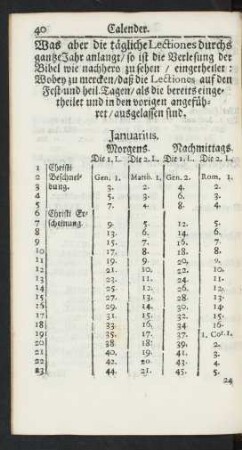 40 Calender.
Was aber die tägliche Lectiones durchs
gantze Jahr anlangt / so ist die Verlesung der
Bibel wie nachhero zu sehen / eingetheilet:
Wobey zu mercken / daß die Lectiones auf den
Fest und heil. Tagen / als die bereits einge-
theilet und in den vorigen angefüh-
ret / ausgelassen sind.
Januarius.
Morgens. Nachmittags.
Die 1. L. Die 2. L. Die 1. L. Die 2. L.
1 Christi
2 Beschnei- Gen. 1. Matth. 1. Gen. 2. Rom. 1.
3 dung. 3. 2. 4. 2.
4 5. 3. 6. 3.
5 7. 4. 8. 4.
6 Christi Er-
7 scheinung. 9. 5. 12. 5.
8 13. 6. 14. 6.
9 15. 7. 16. 7.
10 17. 8. 18. 8.
11 19. 9. 20. 9.
12 21. 10. 22. 10.
13 23. 11. 24. 11.
14 25. 12. 26. 12.
15 27. 13. 28. 13.
16 29. 14. 30. 14.
17 31. 15. 32. 15.
18 33. 16. 34. 16.
19 35. 17. 37. 1. Cor. 1.
20 38. 18. 39. 2.
21 40. 19. 41. 3.
22 42. 20. 43. 4.
23 44. 21. 45. 5.
24